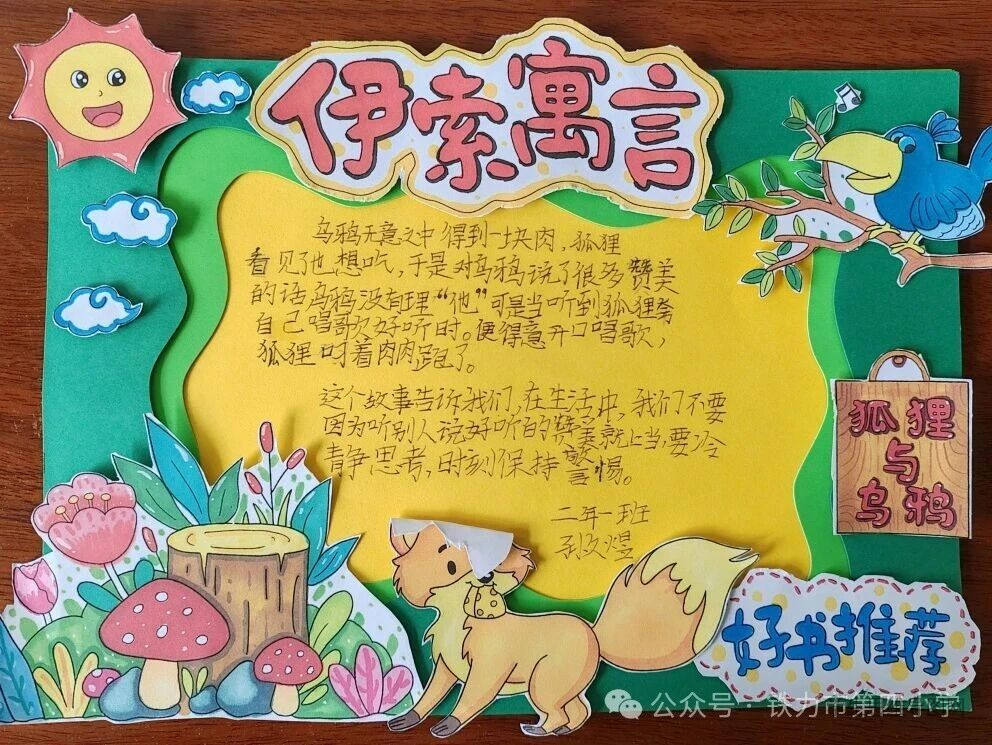 伊索寓言
乌鸦无意之中得到一块肉，狐狸
看见了也想吃，于是对乌鸦说了很多赞美
的话乌鸦没有理“他”可是当听到狐狸夸
自己唱歌好听时。便得意开口唱歌，
狐狸叼着肉肉跑了。
这个故事告诉我们，在生活中，我们不要
因为听别人说好听的赞美就上当，要冷
静思考，时刻保持警惕。
二年一班
狐狸
与
乌鸦
好书推荐
公众号·铁力市第四小学